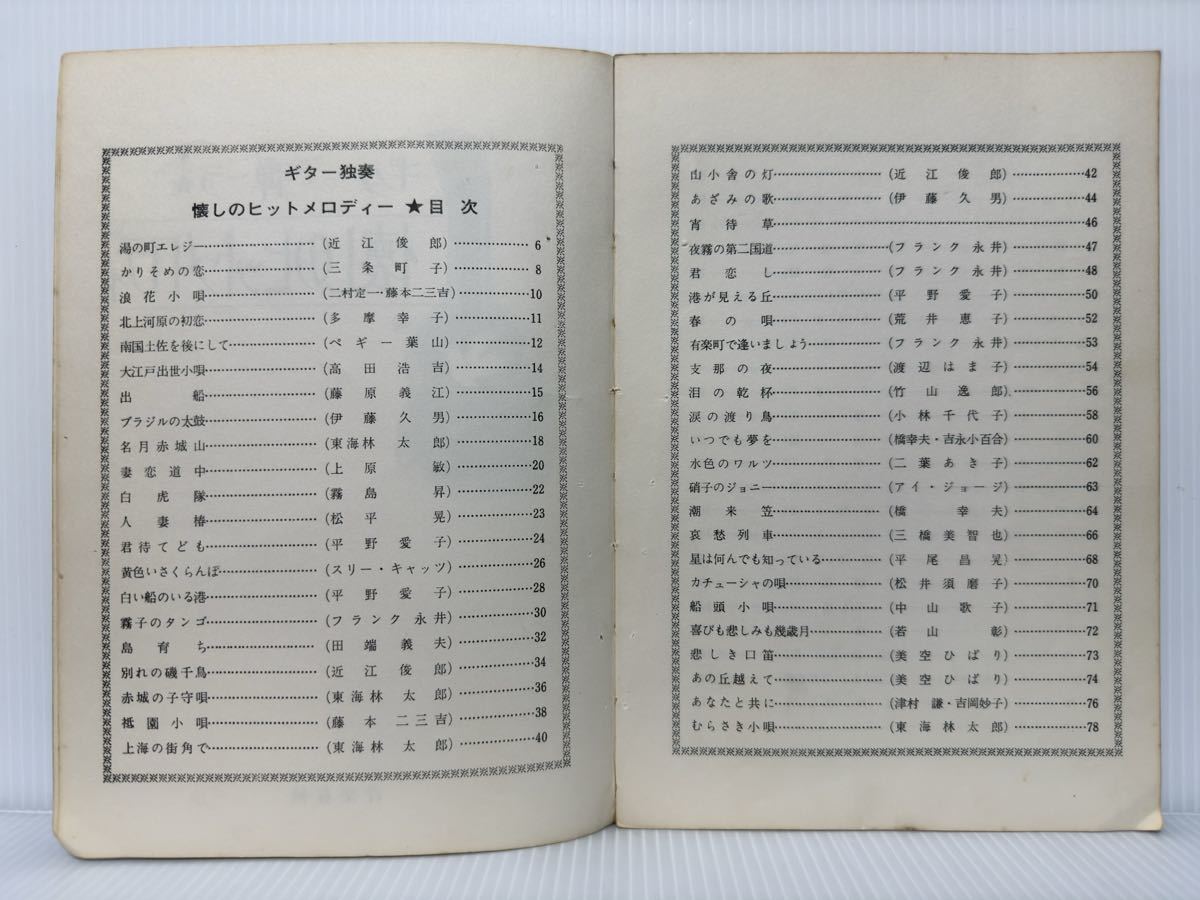 ギター独奏
懐しのヒットメロディー ★目 次
湯の町エレジー…………………(近江俊郎)……………6
かりそめの恋…………………(三条町子)……………8
浪花小唄…………………(二村定一・藤本二三吉)……………10
北上河原の初恋…………………(多摩幸子)……………11
南国土佐を後にして…………………(ペギー葉山)……………12
大江戸出世小唄…………………(高田浩吉)……………14
出船…………………(藤原義江)……………15
ブラジルの太鼓…………………(伊藤久男)……………16
名月赤城山…………………(東海林太郎)……………18
妻恋道中…………………(上原敏)……………20
白虎隊…………………(霧島昇)……………22
人妻椿…………………(松平晃)……………23
君待てども…………………(平野愛子)……………24
黄色いさくらんぼ…………………(スリー・キャッツ)……………26
白い船のいる港…………………(平野愛子)……………28
霧子のタンゴ…………………(フランク永井)……………30
島育ち…………………(田端義夫)……………32
別れの磯千鳥…………………(近江俊郎)……………34
赤城の子守唄…………………(東海林太郎)……………36
祗園小唄…………………(藤本二三吉)……………38
上海の街角で…………………(東海林太郎)……………40
山小舎の灯…………………(近江俊郎)……………42
あざみの歌…………………(伊藤久男)……………44
宵待草…………………46
夜霧の第二国道…………………(フランク永井)……………47
君恋し…………………(フランク永井)……………48
港が見える丘…………………(平野愛子)……………50
春の唄…………………(荒井恵子)……………52
有楽町で逢いましょう…………………(フランク永井)……………53
支那の夜…………………(渡辺はま子)……………54
泪の乾杯…………………(竹山逸郎)……………56
涙の渡り鳥…………………(小林千代子)……………58
いつでも夢を…………………(橋幸夫・吉永小百合)……………60
水色のワルツ…………………(二葉あき子)……………62
硝子のジョニー…………………(アイ・ジョージ)……………63
潮来笠…………………(橋幸夫)……………64
哀愁列車…………………(三橋美智也)……………66
星は何んでも知っている…………………(平尾昌晃)……………68
カチューシャの唄…………………(松井須磨子)……………70
船頭小唄…………………(中山歌子)……………71
喜びも悲しみも幾歳月…………………(若山彰)……………72
悲しき口笛…………………(美空ひばり)……………73
あの丘越えて…………………(美空ひばり)……………74
あなたと共に…………………(津村謙・吉岡妙子)……………76
むらさき小唄…………………(東海林太郎)……………78